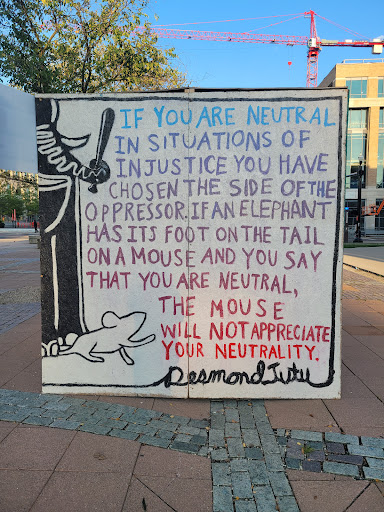 IF YOU ARE NEUTRAL
IN SITUATIONS OF
INJUSTICE YOU HAVE
CHOSEN THE SIDE OF THE
OPPRESSOR. IF AN ELEPHANT
HAS ITS FOOT ON THE TAIL
ON A MOUSE AND YOU SAY
THAT YOU ARE NEUTRAL,
THE MOUSE
WILL NOT APPRECIATE
YOUR NEUTRALITY.
Desmond Tutu